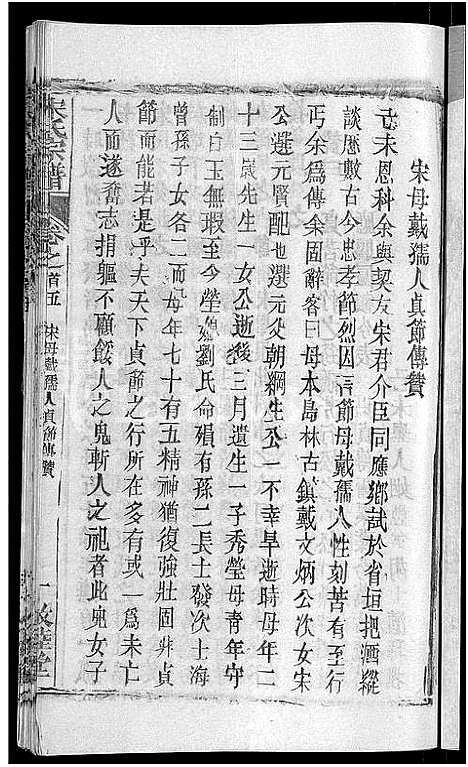 宋母戴孺人貞節傳贊
己未恩科余與契友宋君介臣同應鄉試於省垣把酒縱
談歷數古今忠孝節烈因言節母戴孺人性刻苦有至行
丐余爲傳余固辭客曰母本烏林古鎮戴文炳公次女宋
公選元賢配也選元父朝綱生公一不幸早逝時母年二
十三歲先生一女公逝後三月遺生一子秀瑩母青年守
制白玉無瑕至今瑩媳劉氏命殞有孫二長士發次上海
曾孫子女各二而母年七十有五精神猶復強壯固非貞
節而能若是乎夫下貞節之行所在多有或一爲未亡
人而遂喬志捐軀不顧餒人之鬼斬人之祀者此兒女子
宋氏宗譜
卷之首五
宋母戴孺人貞節傳贊
一
敦睦堂